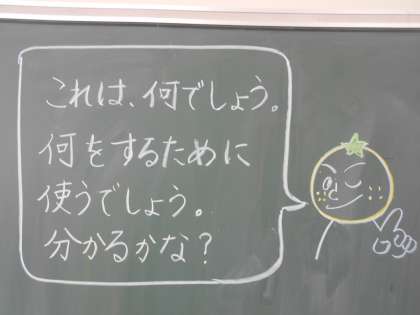 これは、何でしょう。
何をするために
使うでしょう。
分かるかな？